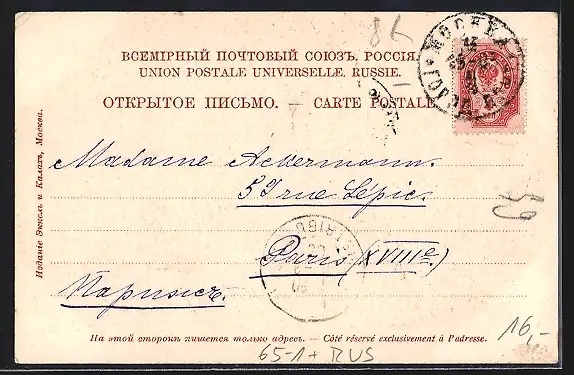 86
ВСЕМІРНЫЙ ПОЧТОВЫЙ СОЮЗЪ. РОССІЯ.
UNION POSTALE UNIVERSELLE. RUSSIE.
ОТКРЫТОЕ ПИСЬМО. — CARTE POSTALE
МОСКВА
Madame Ackermann.
53 rue Lépic.
59
Paris (XVIIIe)
Парижъ.
Изданіе Эккель и Калахъ, Москва.
На этой сторонѣ пишется только адресъ. — Côté réservé exclusivement à l'adresse.
16,-
65-1+ RUS